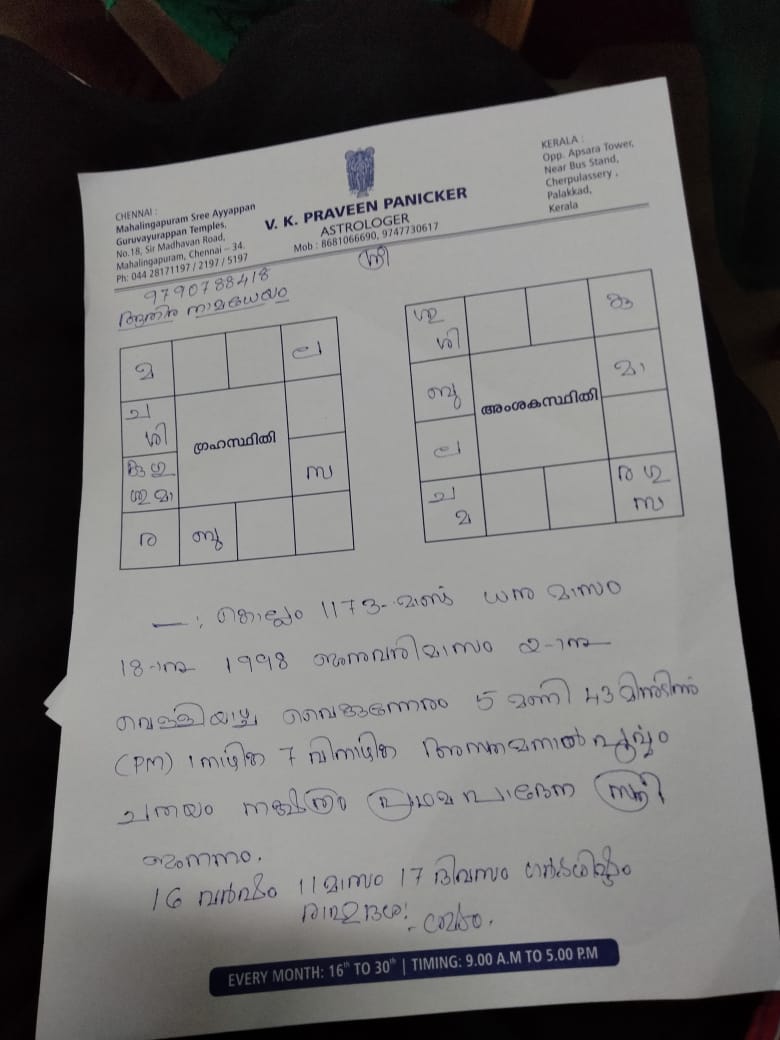 CHENNAI :
Mahalingapuram Sree Ayyappan
Guruvayurappan Temples,
No.18, Sir Madhavan Road,
Mahalingapuram, Chennai – 34.
Ph: 044 28171197 / 2197 / 5197
V. K. PRAVEEN PANICKER
ASTROLOGER
Mob : 8681066690, 9747730617
KERALA :
Opp. Apsara Tower,
Near Bus Stand,
Cherpulassery ,
Palakkad,
Kerala
ശ്രീ
9790788418
നാമധേയം
മ ല
ച
ശി
ഗ്രഹസ്ഥിതി
കു ഗു
ശു മാ
സ
ര ബു
ശു
ശി
കു
ബു
അംശകസ്ഥിതി
മാ
ല
ച
മ
ര ഗു
സ
—: കൊല്ലം 1173-മാണ്ട് ധനു മാസം
18-ാനു 1998 ജനുവരിമാസം 2-ാനു
വെള്ളിയാഴ്ച വൈകുന്നേരം 5 മണി 43 മിനിട്ടിന്
(PM) 1 നാഴിക 7 വിനാഴിക അസ്തമനാൽ പൂർവ്വം
ചതയം നക്ഷത്രം പ്രഥമ പാദേന സ്ത്രീ
ജനനം.
16 വർഷം 11 മാസം 17 ദിവസം ഗർഭശിഷ്ടം
രാഹുദശ!
EVERY MONTH: 16th TO 30th | TIMING: 9.00 A.M TO 5.00 P.M